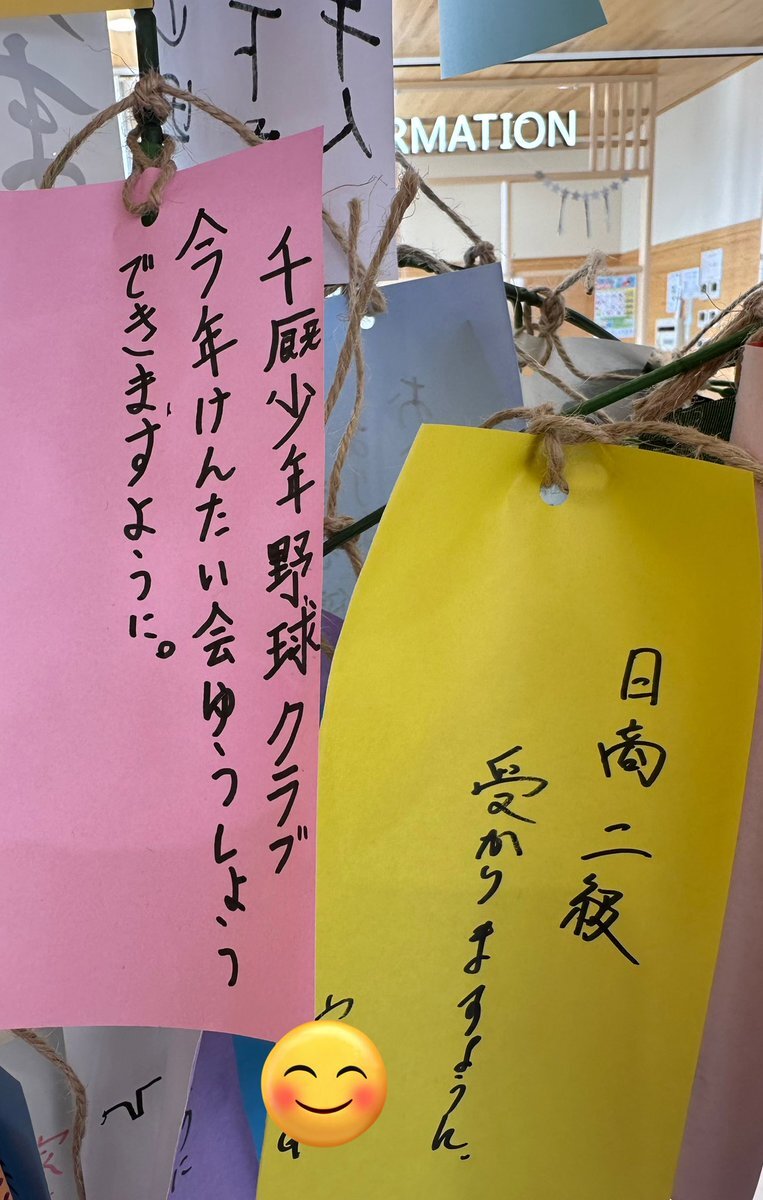 RMATION
千厩少年野球クラブ
今年けんたい会ゆうしょう
できますように。
日商二級
受かりますように。